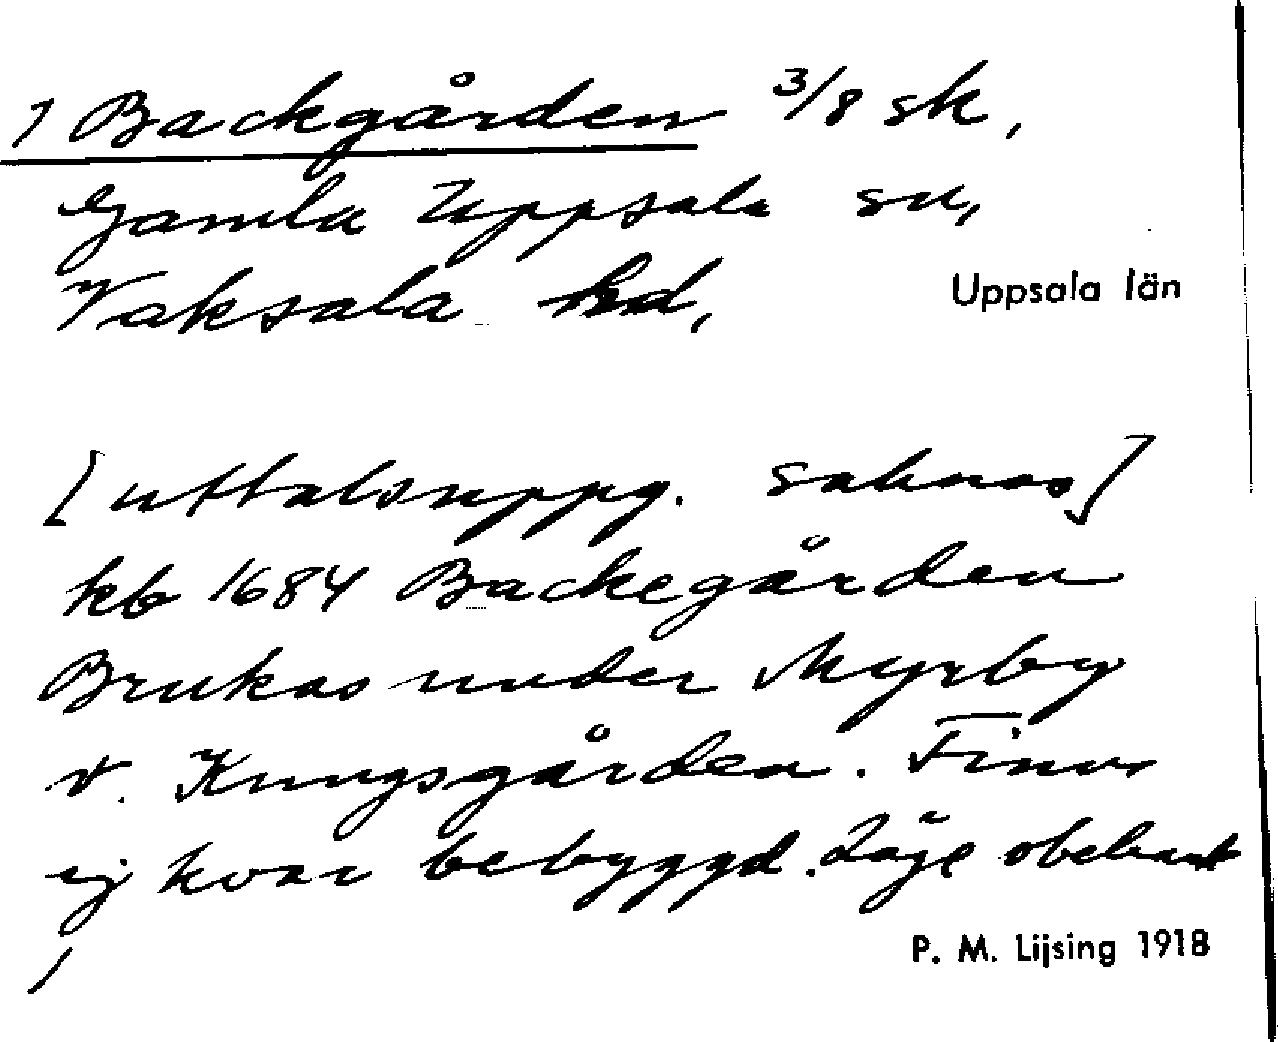 1 Backgården 3/8 sk,
Gamla Uppsala sn,
Vaksala hd,
Uppsala län
[uttalsuppg. saknas]
kb 1684 Backegården
Brukas under Myrby
o. Kungsgården. Finns
ej kvar bebyggd. Läge obekant
P. M. Lijsing 1918